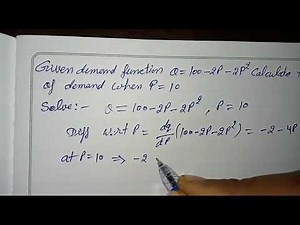 Given demand function Q = 100-2P-2P² Calculate
of demand when P = 10
Solve:- Q = 100-2P-2P², P = 10
Diff w.r.t P = dq/dP (100-2P-2P²) = -2-4P
at P=10 ⇒ -2